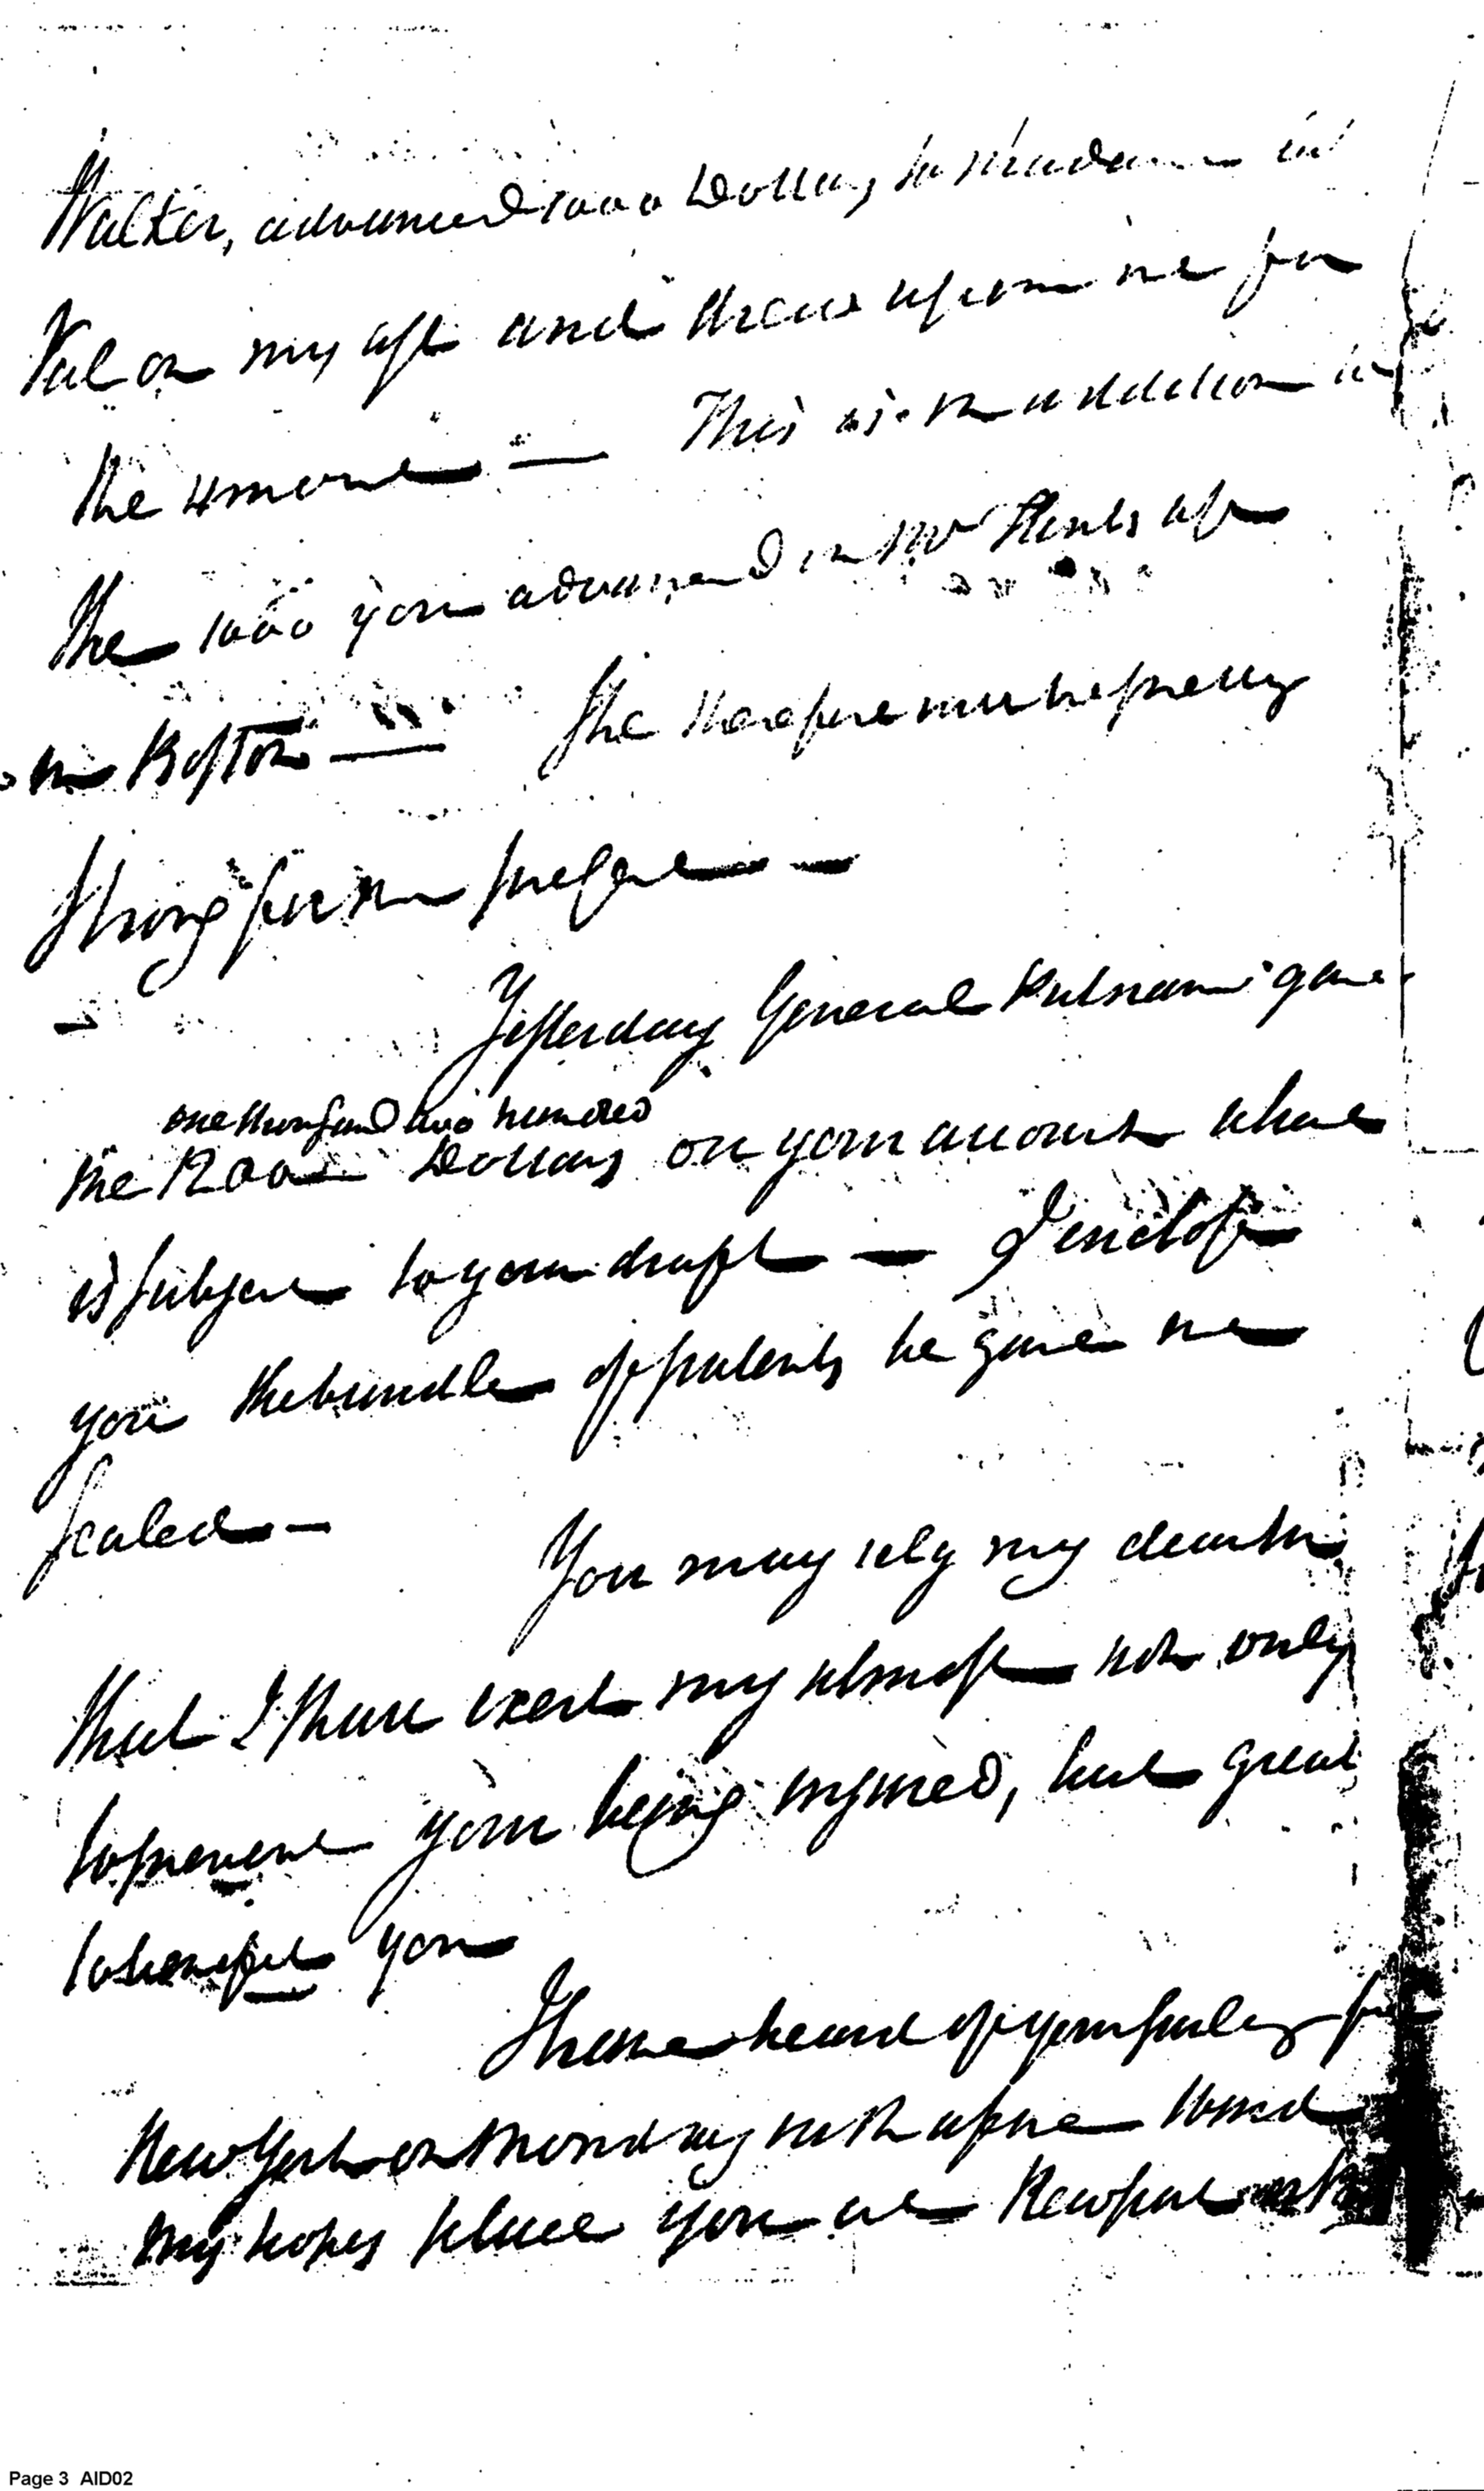 Walter, advanced 1000 Dollars to Madam
Val on my a/c and drew upon me for
the amount — This is in addition to
the 1000 you advanced in Mr a/c
in Boston — She therefore must be pretty
strong for the present —
Yesterday General Putnam gave
one thousand two hundred
me 1200 Dollars on your account which
is subject to your draft — I enclose
you the bundle of patents he gave me
sealed —
You may rely my dear Sir
that I shall exert my utmost not only
to prevent your being injured, but great
to benefit you
I have heard of your safely
New York on Monday with a fine wind
my hopes place you at Newport
Page 3 AID02